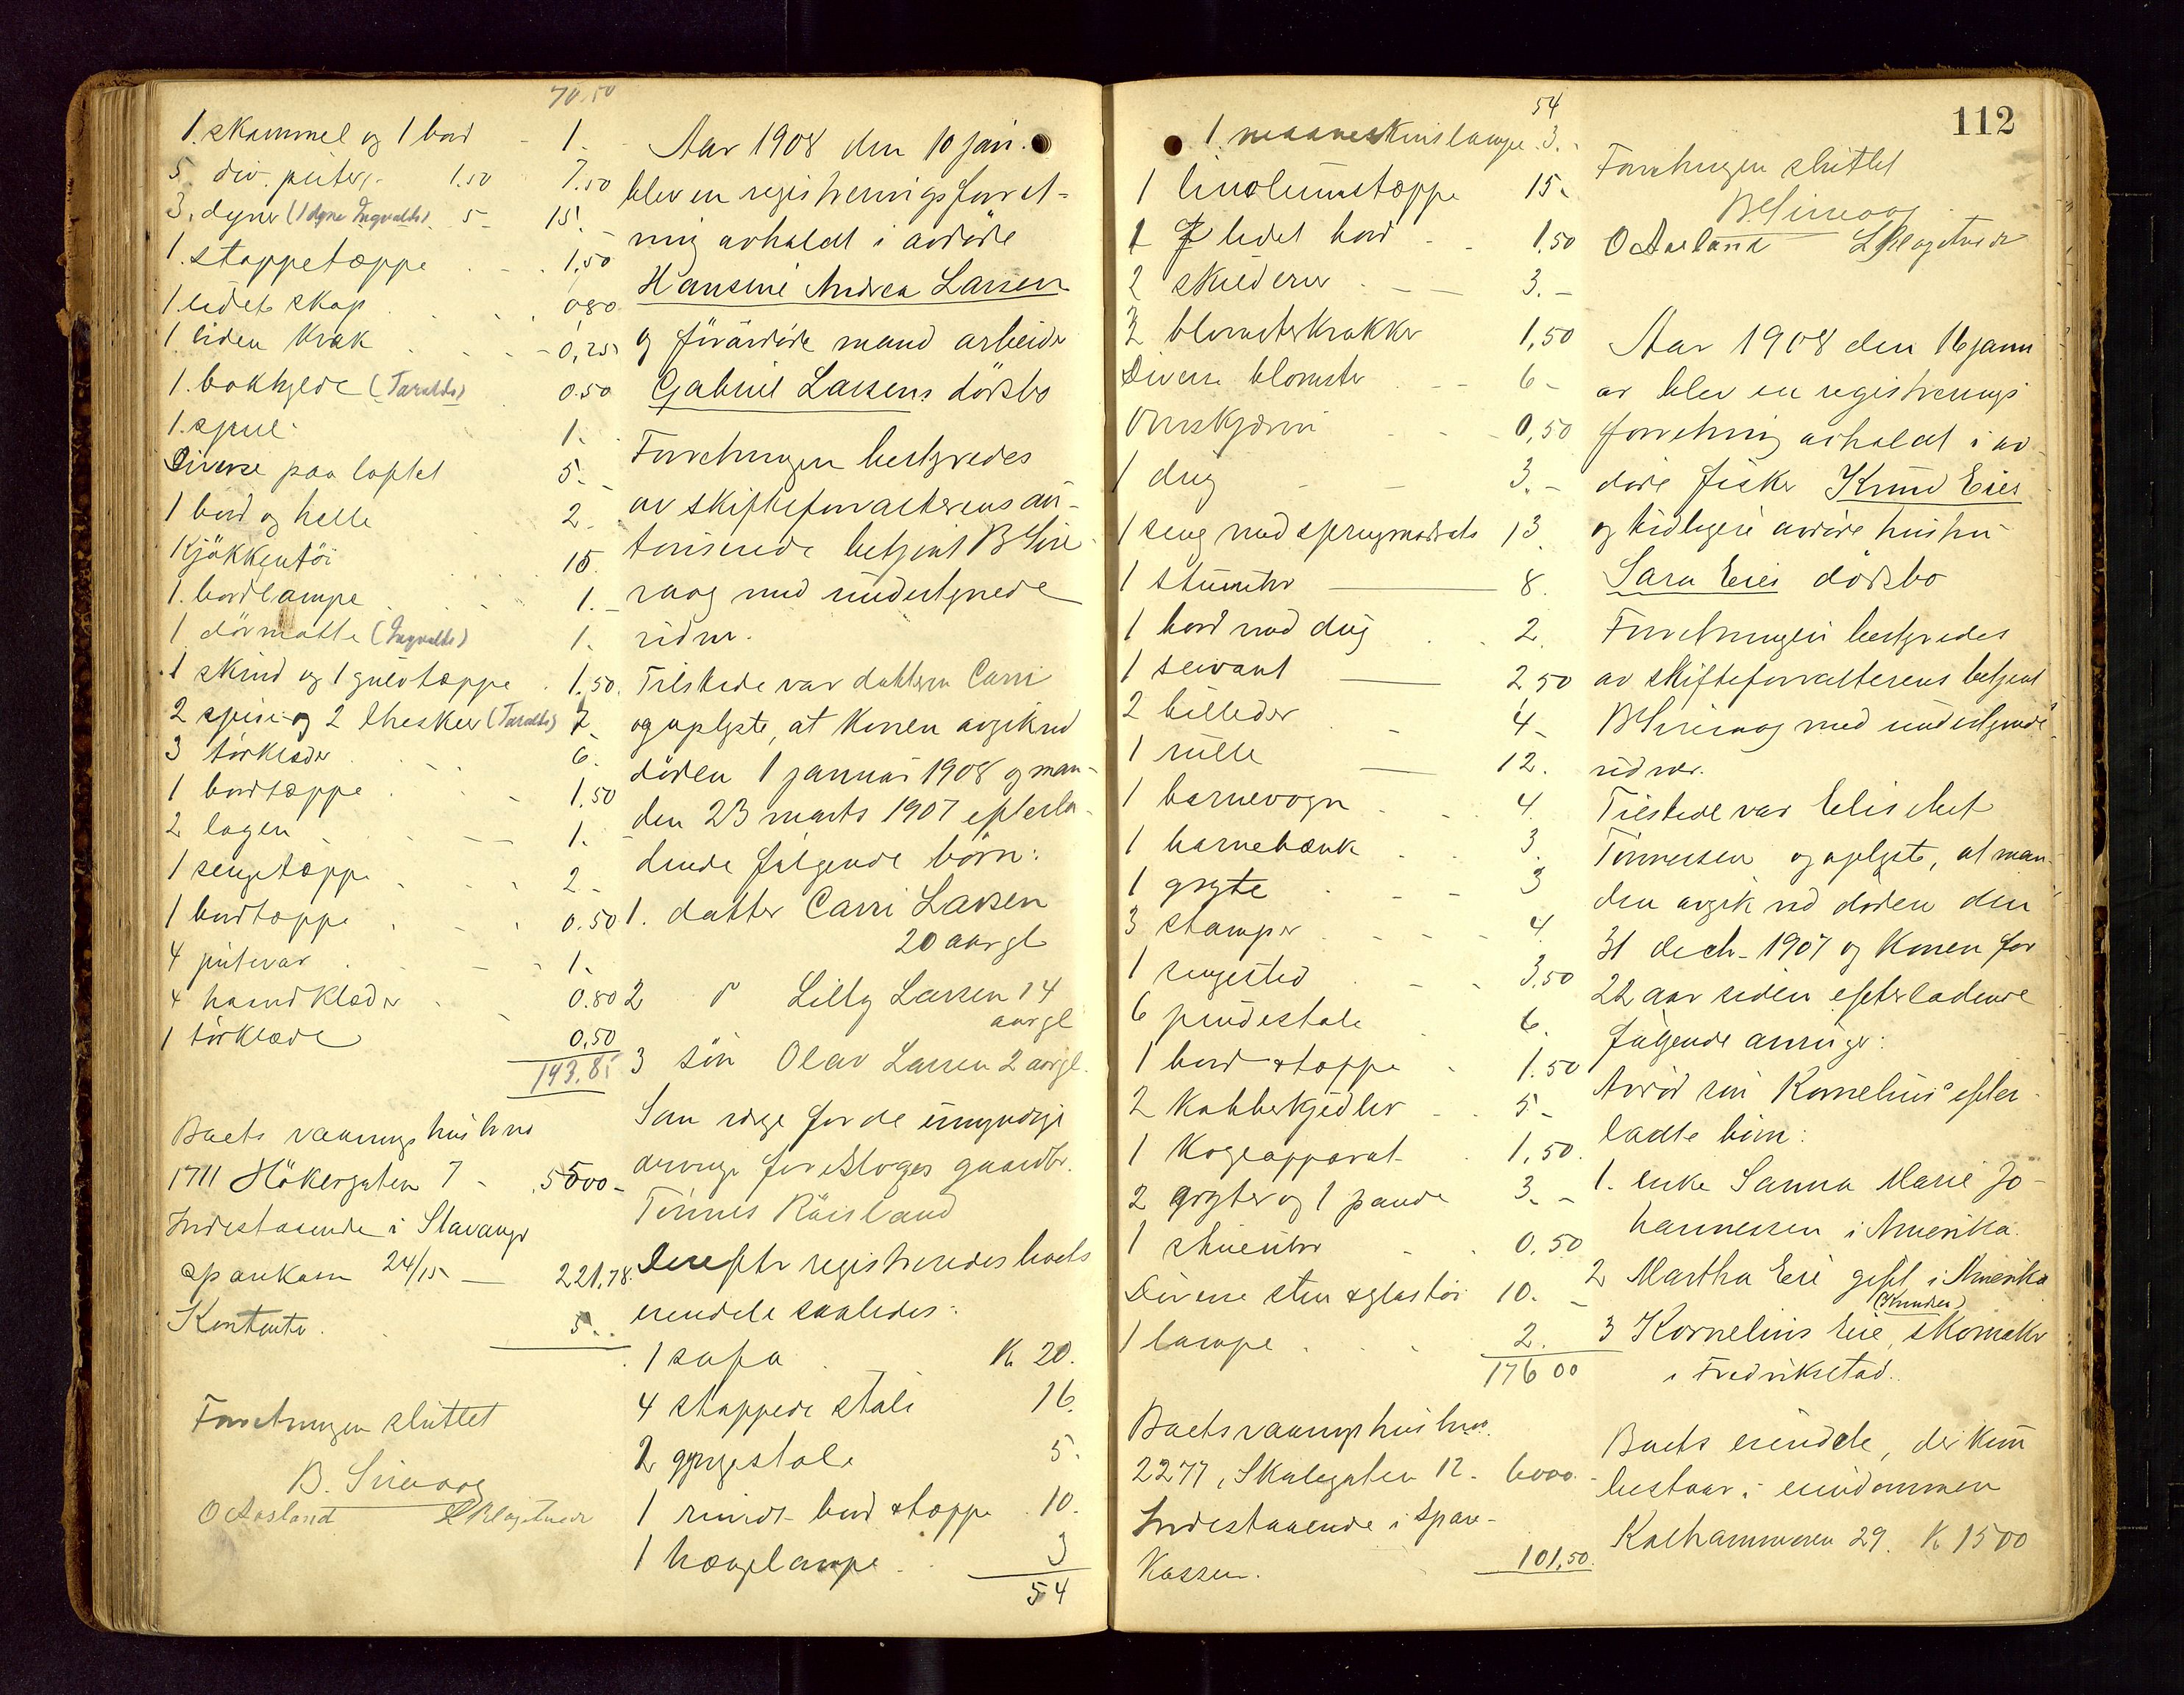 70.50
1. skammel og 1 bord - 1.
5 div. puter 1.50 7.50
3. dyner (1 dyne Ingvalds) 5 - 15.
1. stoppetæppe 1,50
1 lidet skap 0 80
1 liden krak 0,25
1. bokhylde (Taralds) 0.50
1. speil 1.
Diverse paa loftet 5.
1 bord og helle 2.
Kjökkentöi 15.
1. bordlampe 1.
1 dörmatte (Ingvalds) 1.
1 skind og 1 gulvtæppe 1.50.
2 spise og 2 theskeer (Taralds) 7.
3 törklæder 6.
1 bordtæppe 1.50
2 lagen 1.
1 sengetæppe 2.
1 bordtæppe 0.50
4 putevar 1.
4 haandklæder 0.80
1 törklæde 0,50
193.85
Boets vaaningshus hrno
1711 Hökergaten 7 - 5500 -
Indestaaende i Stavanger
sparekasse 24/15 — 221,78.
Kontanter 5.
Forretningen sluttet
B. Sirevaag
O Aasland
Aar 1908 den 10 jan.
blev en registreringsforret-
ning avholdt i avdöde
Hansine Andrea Larsen
og föravdöde mand arbeider
Gabriel Larsens dödsbo
Forretningen bestyredes
av skifteforvalterens au-
toriserede betjent B Sire-
vaag med undertegnede
vidner.
Tilstede var datteren Carri
og oplyste, at konen avgik ved
döden 1 januar 1908 og man-
den 23 marts 1907 efterla-
dende fölgende börn:
1. datter Carri Larsen
20 aar gl
2 " Lilly Larsen 14
aar gl
3 sön Olav Larsen 2 aar gl.
Som verge for de umyndige
arvinge foresloges gaardbr.
Tönnes Röisland
Derefter registreredes boets
eiendele saaledes:
1 sofa K 20.
4 stoppede stole 16.
2 gyngestole 5.
1 rundt bord & tæppe 10.
1 hængelampe 3
54
112
54
1. maaneskinslampe 3.
1 linoleumstæppe 15.
1 lidet bord 1.50
2 skilderier 3. -
3 blomsterkrakker 1,50
Diverse blomster 6 -
Ovnskjærm 0,50
1 dug 3. -
1 seng med springmadrats 13
1 stueuhr 8.
1 bord med dug 2.
1 servant 2 50
2 billeder 4 -
1 rulle 12.
1 barnevogn 4.
1 barnebænk 3.
1 gryte 3
3 stamper 4.
1 sengested 3.50
6 pindestole 6.
1 bord & tæppe 1.50
2 kobberkjedler 5 -
1 kogeapparat 1,50.
2 gryter og 1 pande 3. -
1 stueuhr 0.50
Diverse sten & glastöi 10. -
1 lampe 2.
176 00
Boets vaaningshus hrno.
2277, Skolegaten 12. 6000. -
Indestaaende i Spare-
kassen. 101,50.
Forretningen sluttet
B Sirevaag
O Aasland
Aar 1908 den 16 janu
ar blev en registrerings
forretning avholdt i av
döde fisker Knud Eies
og tidligere avdöde hustru
Sara Eies dödsbo
Forretningen bestyredes
av skifteforvalterens betjent
B Sirevaag med undertegnede
vidner.
Tilstede var Elisabet
Tönnesen og oplyste, at man-
den avgik ved döden den
31 decbr 1907 og konen for
22 aar siden efterladende
fölgende arvinger:
Avdöd sön Kornelius' efter-
ladte börn:
1. enke Sanna Marie Jo-
hannessen i Amerika.
2 Martha Eie gift i Amerika
(Knudsen)
3 Kornelius Eie, skomaker
i Fredrikstad.
Boets eiendele, der kun
bestaar i eiendommen
Kalhammeren 29. K 1500